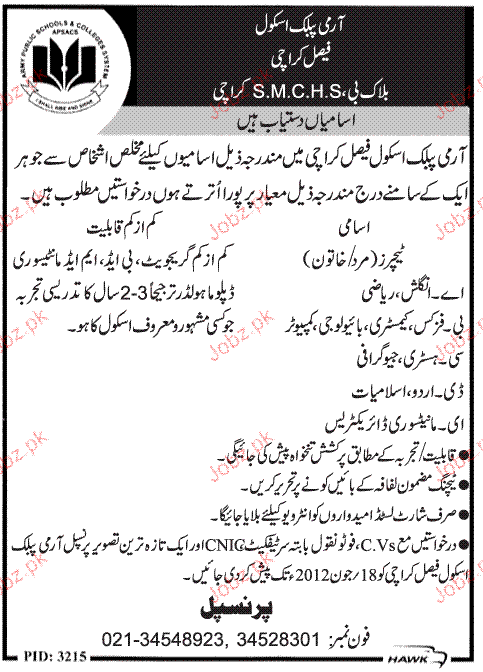 ARMY PUBLIC SCHOOLS & COLLEGES SYSTEM
APSACS
I SHALL RISE AND SHINE
آرمی پبلک اسکول
فیصل کراچی
بلاک بی، S.M.C.H.S کراچی
اسامیاں دستیاب ہیں
آرمی پبلک اسکول فیصل کراچی میں مندرجہ ذیل اسامیوں کیلئے مخلص اشخاص سے جو ہر
ایک کے سامنے درج مندرجہ ذیل معیار پر پورا اُترتے ہوں درخواستیں مطلوب ہیں۔
اسامی
کم از کم قابلیت
ٹیچرز (مرد/خاتون)
کم از کم گریجویٹ، بی ایڈ، ایم ایڈ مانٹیسوری
اے۔ انگلش، ریاضی
ڈپلوما ہولڈر ترجیحاً 3-2 سال کا تدریسی تجربہ
بی۔ فزکس، کیمسٹری، بائیولوجی، کمپیوٹر
جو کسی مشہور و معروف اسکول کا ہو۔
سی۔ ہسٹری، جیوگرافی
ڈی۔ اردو، اسلامیات
ای۔ مانیٹسوری ڈائریکٹریس
● قابلیت/تجربہ کے مطابق پرکشش تنخواہ پیش کی جائیگی۔
● ٹیچنگ مضمون لفافہ کے بائیں کونے پر تحریر کریں۔
● صرف شارٹ لسٹڈ امیدواروں کو انٹرویو کیلئے بلایا جائیگا۔
● درخواستیں مع C.Vs، فوٹو نقول بابتہ سرٹیفکیٹ CNIG اور ایک تازہ ترین تصویر پرنسپل آرمی پبلک
اسکول فیصل کراچی کو 18/جون 2012ء تک پیش کر دی جائیں۔
پرنسپل
فون نمبر: 021-34548923, 34528301
PID: 3215
HAWK
Jobz.pk